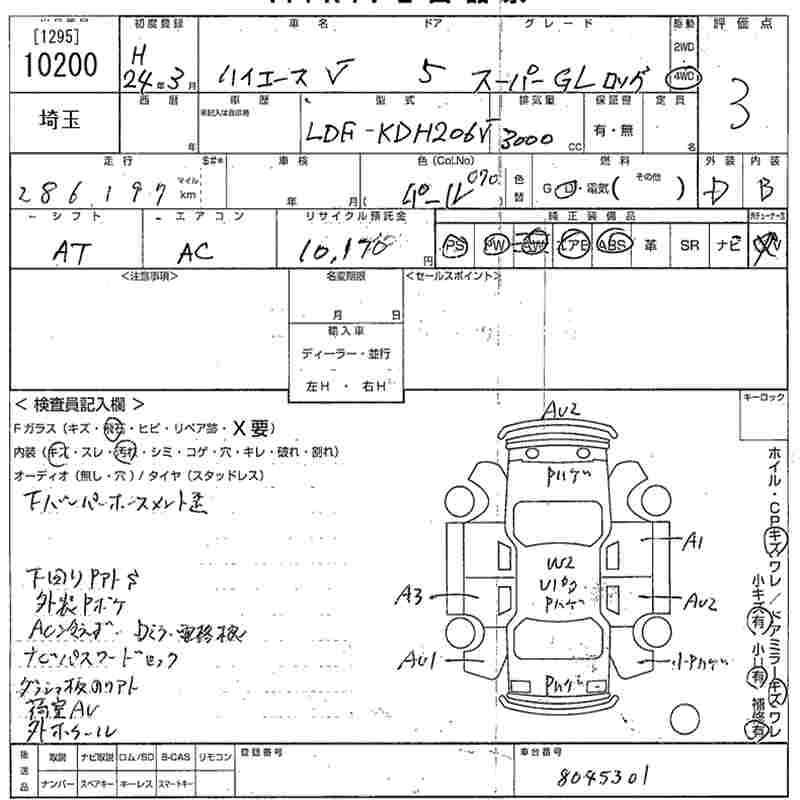 [1295]
10200
埼玉
初度登録
H
24年3月
車名
ハイエースV
ドア
5
グレード
スーパーGL ロング
駆動
2WD
4WD
評価点
3
西暦
年
車歴
未記入は自家用
型式
LDF-KDH206V
排気量
3000
CC
保証書
有・無
定員
名
走行
286,197
マイル
km
$#*
車検
年
月
色(Col.No)
パール 070
色替
燃料
G D・電気(その他)
外装
D
内装
B
シフト
AT
エアコン
AC
リサイクル預託金
10,170
円
純正装備品
PS
PW
AW
エアB
ABS
革
SR
ナビ
TV
<注意事項>
名変期限
月 日
輸入車
ディーラー・並行
左H ・ 右H
<セールスポイント>
<検査員記入欄>
Fガラス(キズ・飛石・ヒビ・リペア跡・X要)
内装(キズ・スレ・汚れ・シミ・コゲ・穴・キレ・破れ・割れ)
オーディオ(無し・穴)/タイヤ(スタッドレス)
下回り
外装Pボケ
ナビパスワードロック
荷室AU
キーロック
AU2
Pハゲ
A1
W2
U1
Pハゲ
A3
AU2
AU1
小Pハゲ
Pハゲ
ホイル・CPキズワレ/ドアミラーキズワレ
小キズ有 小U有 補修有
後送品
取説
ナビ取説
ロム/SD
B-CAS
リモコン
ナンバー
スペアキー
キーレス
スマートキー
登録番号
車台番号
8045301